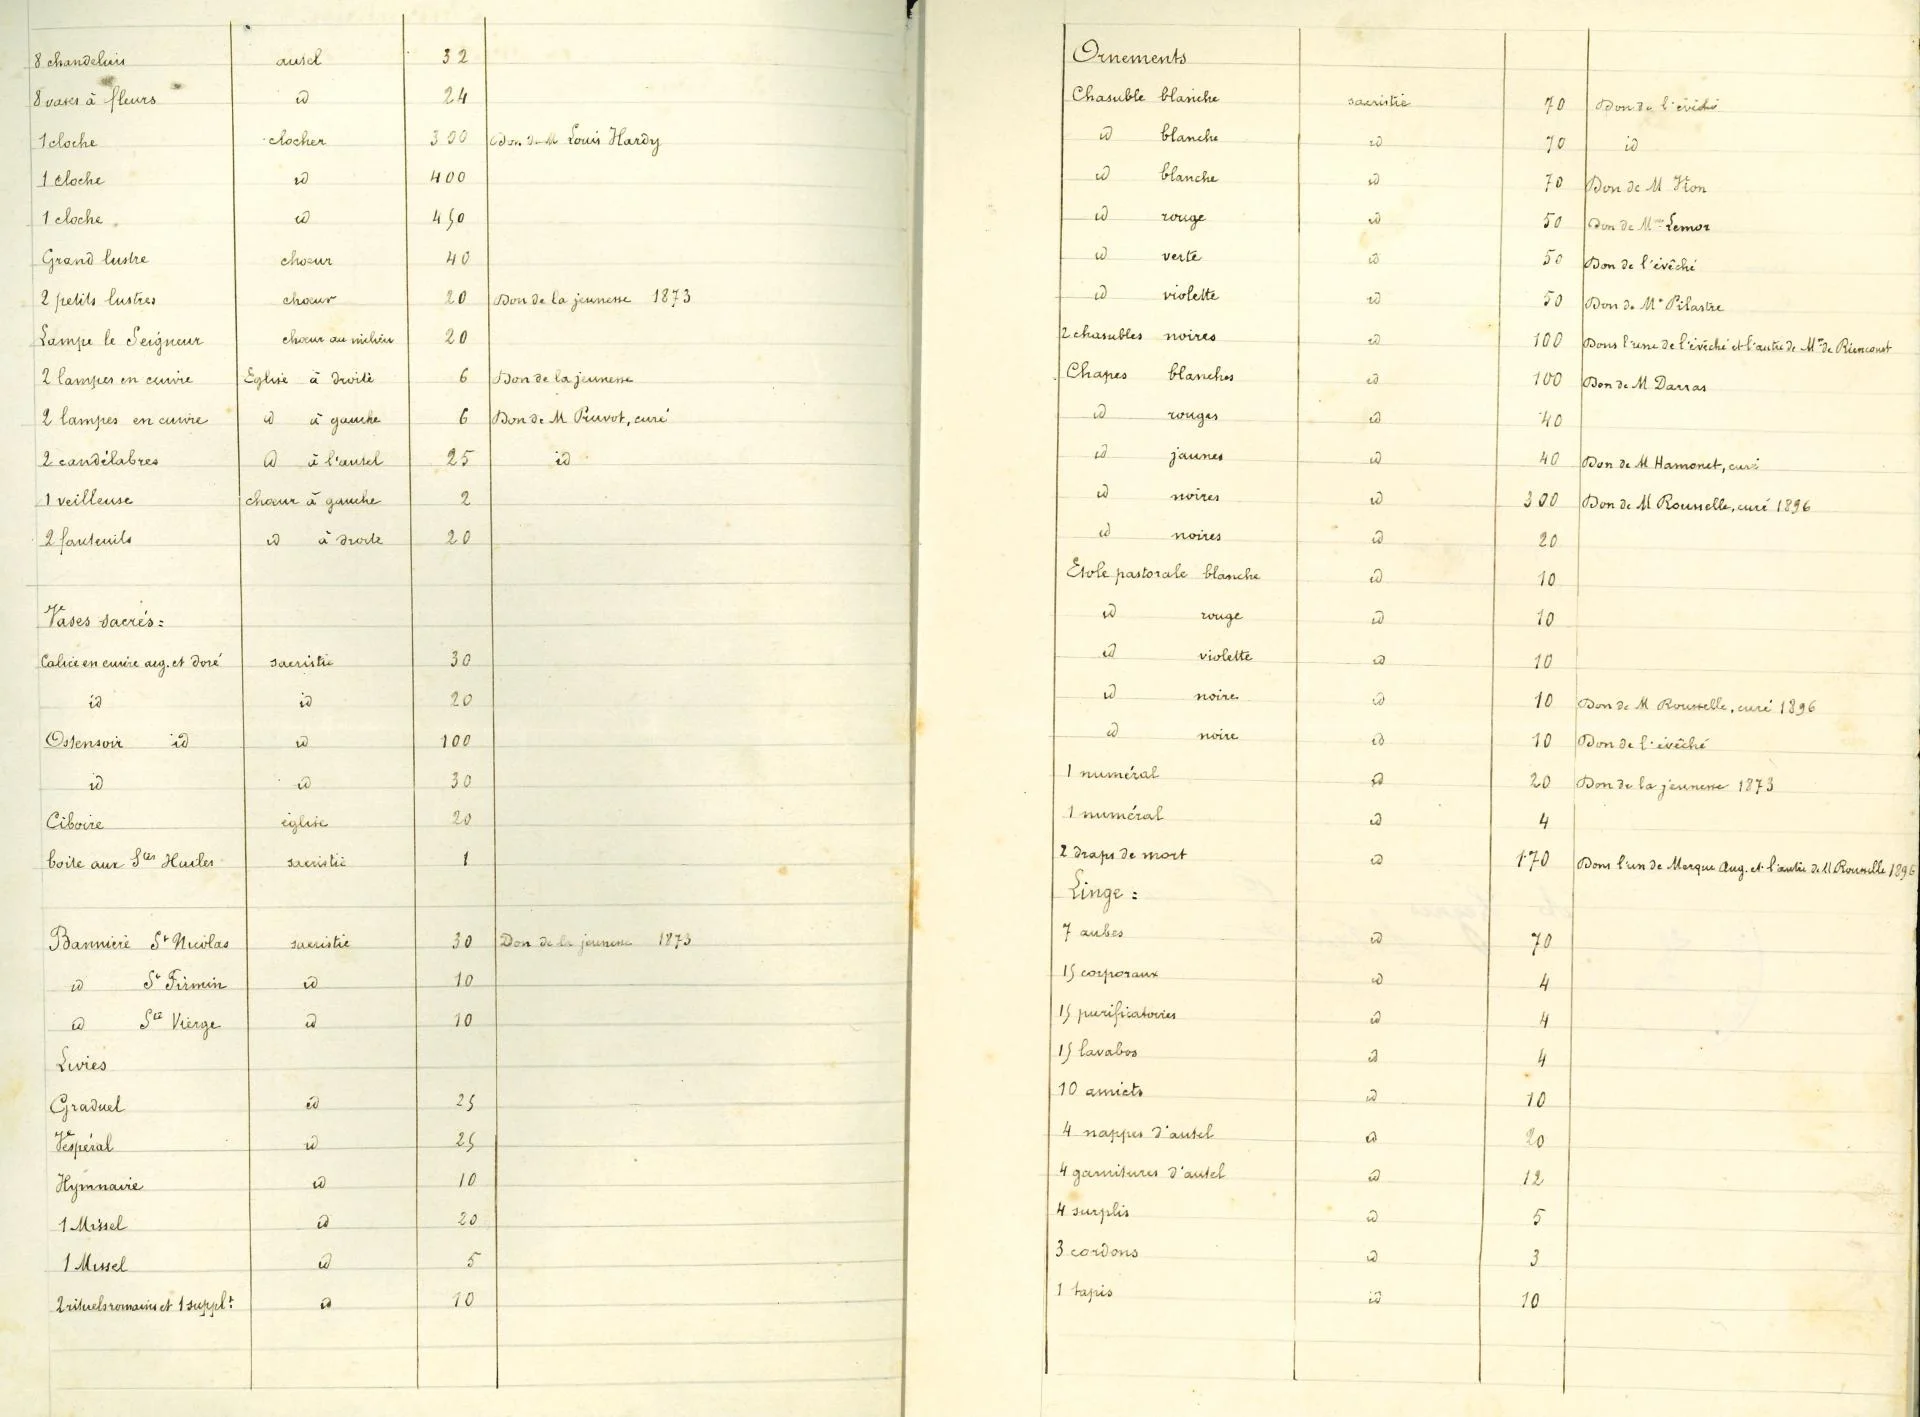 8 chandeliers autel 32
8 vases à fleurs id 24
1 cloche clocher 300 Don de M Louis Hardy
1 cloche id 400
1 cloche id 450
Grand lustre chœur 40
2 petits lustres chœur 20 Don de la jeunesse 1873
Lampe le Seigneur chœur au milieu 20
2 lampes en cuivre Eglise à droite 6 Don de la jeunesse
2 lampes en cuivre id à gauche 6 Don de M Pruvot, curé
2 candélabres id à l'autel 25 id
1 veilleuse chœur à gauche 2
2 fauteuils id à droite 20
Vases sacrés :
Calice en cuivre arg. et doré sacristie 30
id id 20
Ostensoir id id 100
id id 30
Ciboire église 20
boite aux Stes Huiles sacristie 1
Bannière St Nicolas sacristie 30 Don de la jeunesse 1873
id St Firmin id 10
id Ste Vierge id 10
Livres
Graduel id 25
Vespéral id 25
Hymnaire id 10
1 Missel id 20
1 Missel id 5
2 rituels romains et 1 supplt id 10
Ornements
Chasuble blanche sacristie 70 Don de l'évêché
id blanche id 70 id
id blanche id 70 Don de M
id rouge id 50 Don de Mme Lemor
id verte id 50 Don de l'évêché
id violette id 50 Don de Me Pilastre
2 chasubles noires id 100 Dons l'une de l'évêché et l'autre de Mme de Riencourt
Chapes blanches id 100 Don de M Darras
id rouges id 40
id jaunes id 40 Don de M Hamonet, curé
id noires id 300 Don de M Rousselle, curé 1896
id noires id 20
Etole pastorale blanche id 10
id rouge id 10
id violette id 10
id noire id 10 Don de M Rousselle, curé 1896
id noire id 10 Don de l'évêché
1 numéral id 20 Don de la jeunesse 1873
1 numéral id 4
2 draps de mort id 170 Dons l'un de Merque Aug. et l'autre de M Rousselle 1896
Linge :
7 aubes id 70
15 corporaux id 4
15 purificatoires id 4
15 lavabos id 4
10 amicts id 10
4 nappes d'autel id 20
4 garnitures d'autel id 12
4 surplis id 5
3 cordons id 3
1 tapis id 10